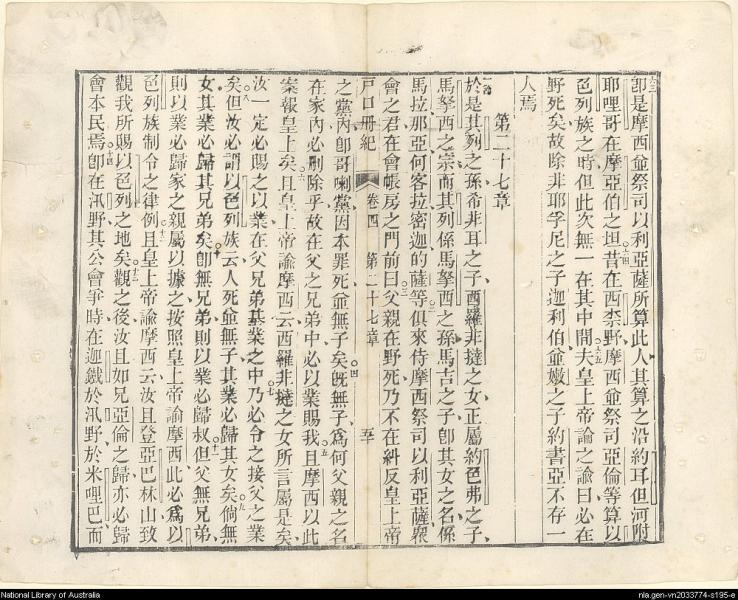 卽是摩西爺祭司以利亞薩所算此人其算之沿約耳但河附
耶哩哥在摩亞伯之坦昔在西柰野摩西爺祭司亞倫等算以
色列族之時但此次無一在其中間夫皇上帝諭之諭曰必在
野死矣故除非耶孚尼之子迦利伯爺嫩之子約書亞不存一
人焉
第二十七章
於是其列之孫希非耳之子酉羅非撻之女正屬約色弗之子
馬拏西之崇而其列係馬拏西之孫馬吉之子卽其女之名係
馬拉那亞何客拉密迦的薩等俱來侍摩西祭司以利亞薩
會之君在會帳房之門前曰父親在野死乃不在糾反皇上帝
戶口冊紀 卷四 第二十七章 五十
之黨內卽哥喇黨因本罪死爺無子矣旣無子爲何父親之名
在家內必刪除乎故在父之兄弟中必以業賜我且摩西以此
案報皇上矣且皇上帝諭摩西云酉羅非撻之女所言屬是矣
汝一定必賜之以業在父兄弟基業之中乃必令之接父之業
矣但汝必謂以色列族云人死爺無子其業必歸其女矣倘無
女其業必歸其兄弟矣卽無兄弟則以業必歸叔但父無兄弟
則以業必歸家之親屬以據之按照皇上帝諭摩西此必爲以
色列族制令之律例且皇上帝諭摩西云汝且登亞巴林山致
觀我所賜以色列之地矣觀之後汝且如兄亞倫之歸亦必歸
會本民焉卽在汛野其公會爭時在迦鐵於汛野於米哩巴而
National Library of Australia
nla.gen-vn2033774-s195-e